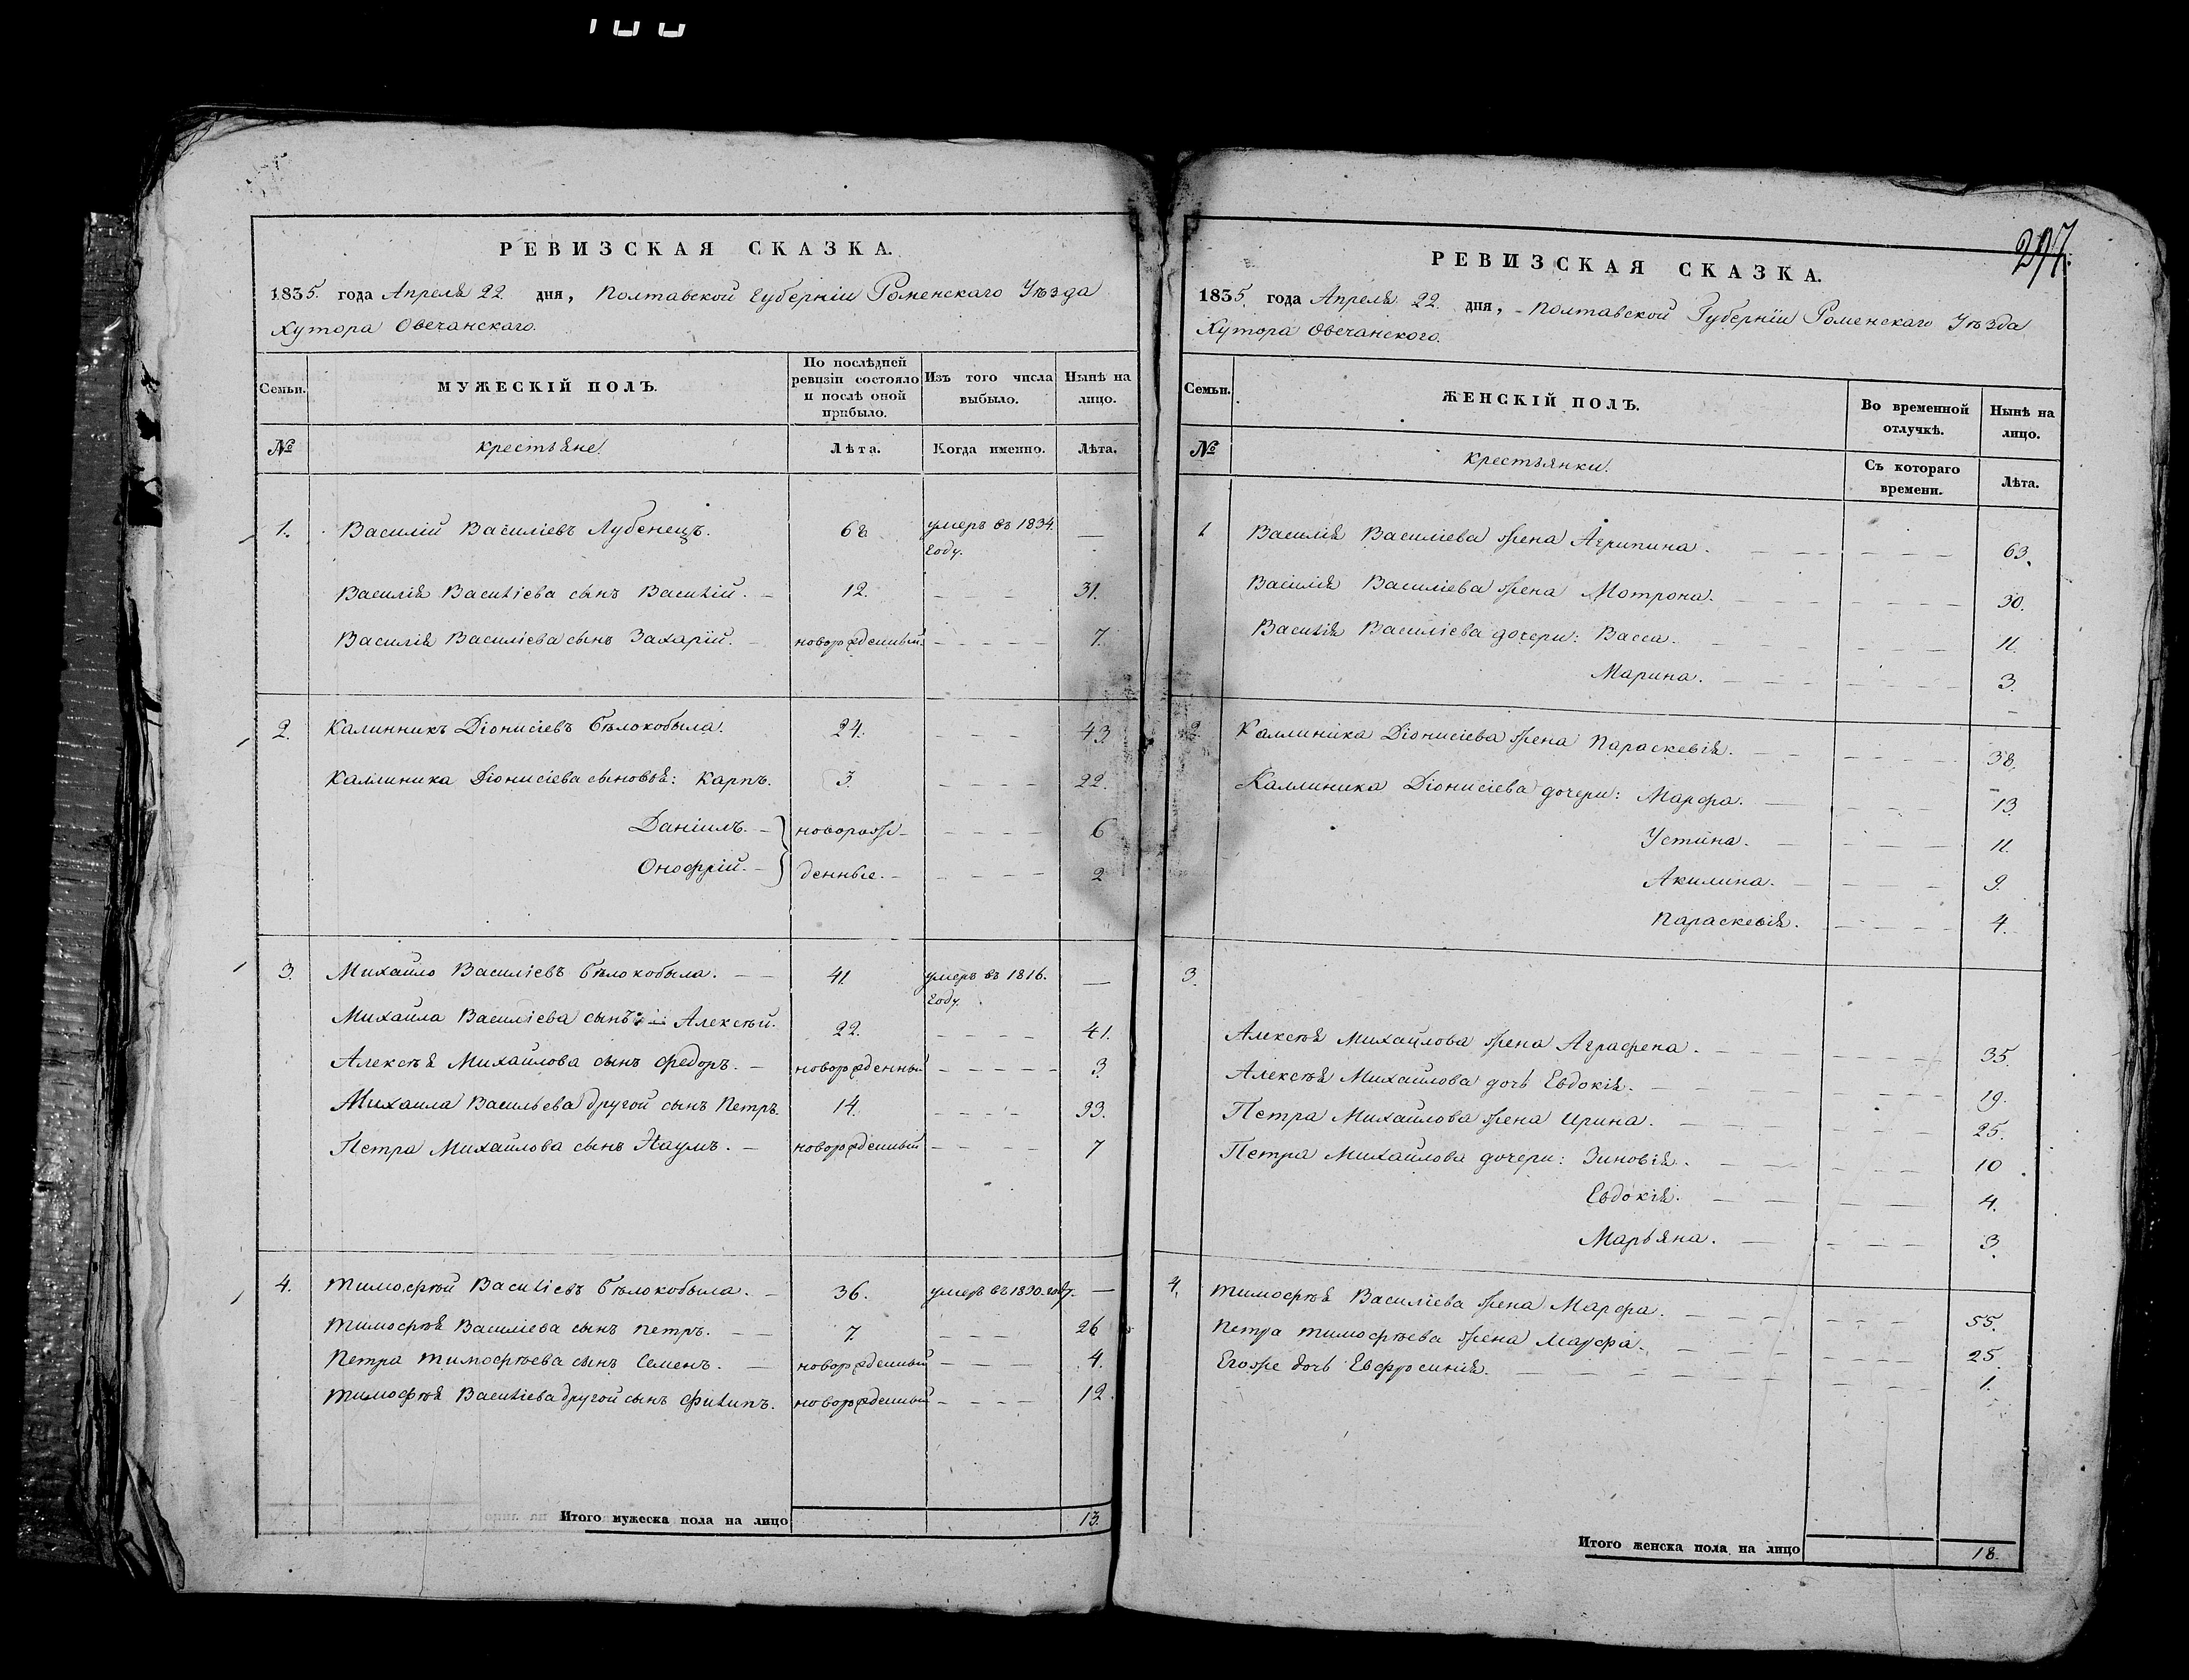 297.
РЕВИЗСКАЯ СКАЗКА.
1835. года Апреля 22 дня, Полтавской Губерніи Роменскаго Уѣзда
Хутора Овечанскаго.
Семьи.
МУЖЕСКІЙ ПОЛЪ.
По послѣдней ревизіи состояло и послѣ оной прибыло.
Изъ того числа выбыло.
Нынѣ на лицо.
№ крестьяне. Лѣта. Когда именно. Лѣта.
1. Василій Василіевъ Лубенецъ. 68 умеръ въ 1834. —
году.
Василія Василіева сынъ Василій. — 12. – – – – 31.
Василія Василіева сынъ Захарій. — новорожденный – – – – 7.
2. Калинникъ Діонисіевъ Бѣлокобыла. 24. – – – 43
Каллиника Діонисіева сыновья: Карпъ. 3. – – – – 22.
Даніилъ. — новорож– – – – – 6
Онофрій. — денные. – – – – – 2
3. Михайло Василіевъ Бѣлокобыла. — — 41. умеръ въ 1816. —
году.
Михаила Василіева сынъ: — Алексѣй. 22. – – – – 41.
Алексѣя Михайлова сынъ Федоръ. — новорожденный – – – – – 3.
Михаила Васильева другой сынъ Петръ. 14. – – – – 33.
Петра Михайлова сынъ Наумъ. — новорожденный – – – – 7
4. Тимофѣй Василіевъ Бѣлокобыла. — 36. умеръ въ 1830. году. —
Тимофѣя Василіева сынъ Петръ. — — 7. – – – 26
Петра Тимофѣева сынъ Семенъ. — новорожденный – – 4.
Тимофѣя Василіева другой сынъ Филипъ. новорожденный – – – – 12.
Итого мужеска пола на лицо 13.
РЕВИЗСКАЯ СКАЗКА.
1835. года Апреля 22. дня, Полтавской Губерніи Роменскаго Уѣзда
Хутора Овечанского.
Семьи.
ЖЕНСКІЙ ПОЛЪ.
Во временной отлучкѣ.
Нынѣ на лицо.
№ крестьянки. Съ котораго времени. Лѣта.
1 Василія Василіева жена Агрипина. — — — – – – – 63.
Василія Василіева жена Мотрона. – – – – – – – 30.
Василія Василіева дочери: Васса. – – – – – – – 11.
Марина. – – – – – – – 3.
2. Каллиника Діонисіева жена Параскевія. — – – – – 38.
Каллиника Діонисіева дочери: Марфа. — – – – 13
Устина. — – – – 11.
Акилина. — – – – 9.
Параскевія. – – – – – 4.
3.
Алексѣя Михайлова жена Аграфена. – – – – – – – 35.
Алексѣя Михайлова дочь Евдокія. – – – – – – – 19.
Петра Михайлова жена Ирина. – – – – – – 25.
Петра Михайлова дочери: Зиновія. — — – – – 10
Евдокія. — — – – – 4.
Марьяна. — – – – – 3
4. Тимофѣя Василіева жена Марфа. – – – – – – – 55.
Петра Тимофѣева жена Марфа. – – – – – – – 25.
Егоже дочь Евфросинія. – – – – – – – – 1.
Итого женска пола на лицо 18.